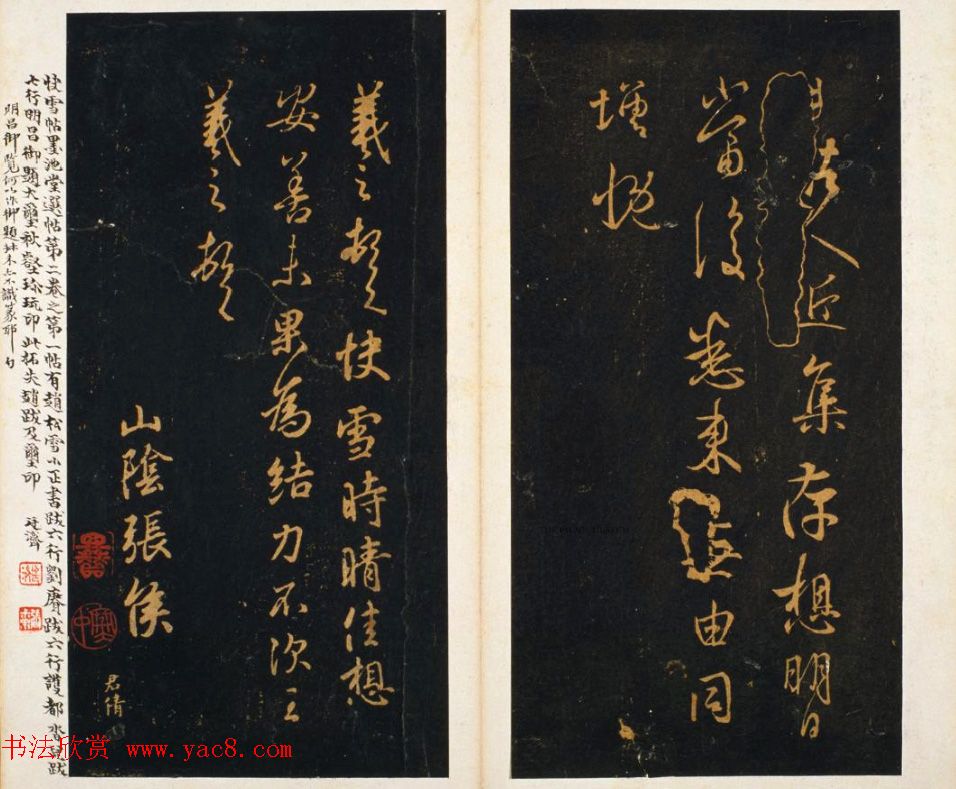 人近集存想明日
當復悉來無由同
增慨
羲之頓首快雪時晴佳想
安善未果為結力不次王
羲之頓首
山陰張侯
君倩
快雪帖墨池堂選帖第二卷之第一帖有趙松雪小正書跋六行劉賡跋六行護都沓兒跋
六行明昌御題大璽秋壑珍玩印此拓失趙跋及璽印 廷濟
明昌御覽何以作御題殊未不識篆耶
书法欣赏 www.yac8.com